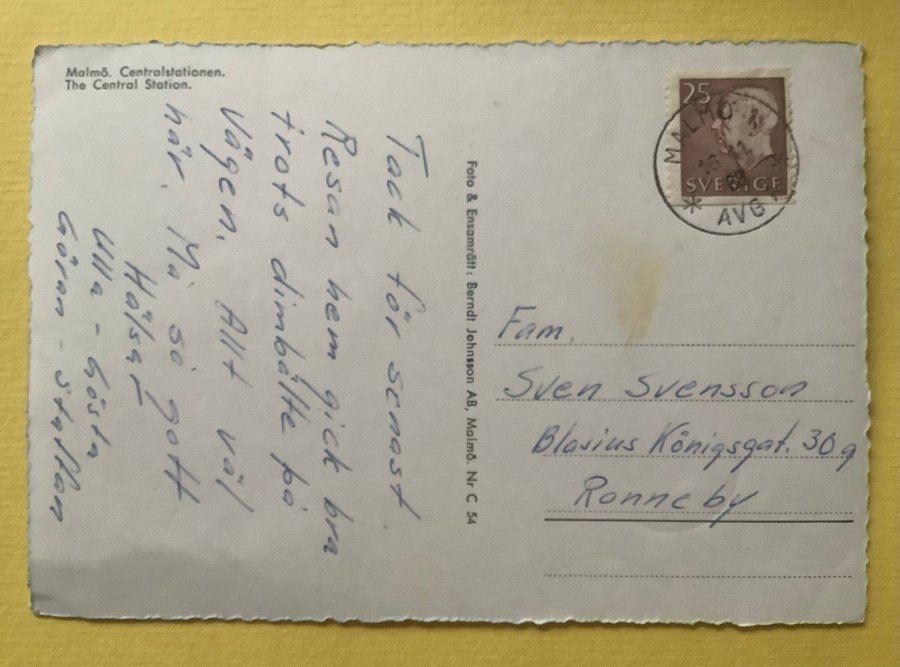 Malmö. Centralstationen.
The Central Station.
Tack för senast
Resan hem gick bra
trots dimbälte på
vägen. Allt väl
här. Må så gott
Hälsar
Ulla - Gösta
Göran - Staffan
Foto & Ensamrätt: Berndt Johnsson AB, Malmö. Nr C 54
25
SVERIGE
MALMÖ
AVG
Fam.
Sven Svensson
Blasius Königsgat. 30a
Ronneby